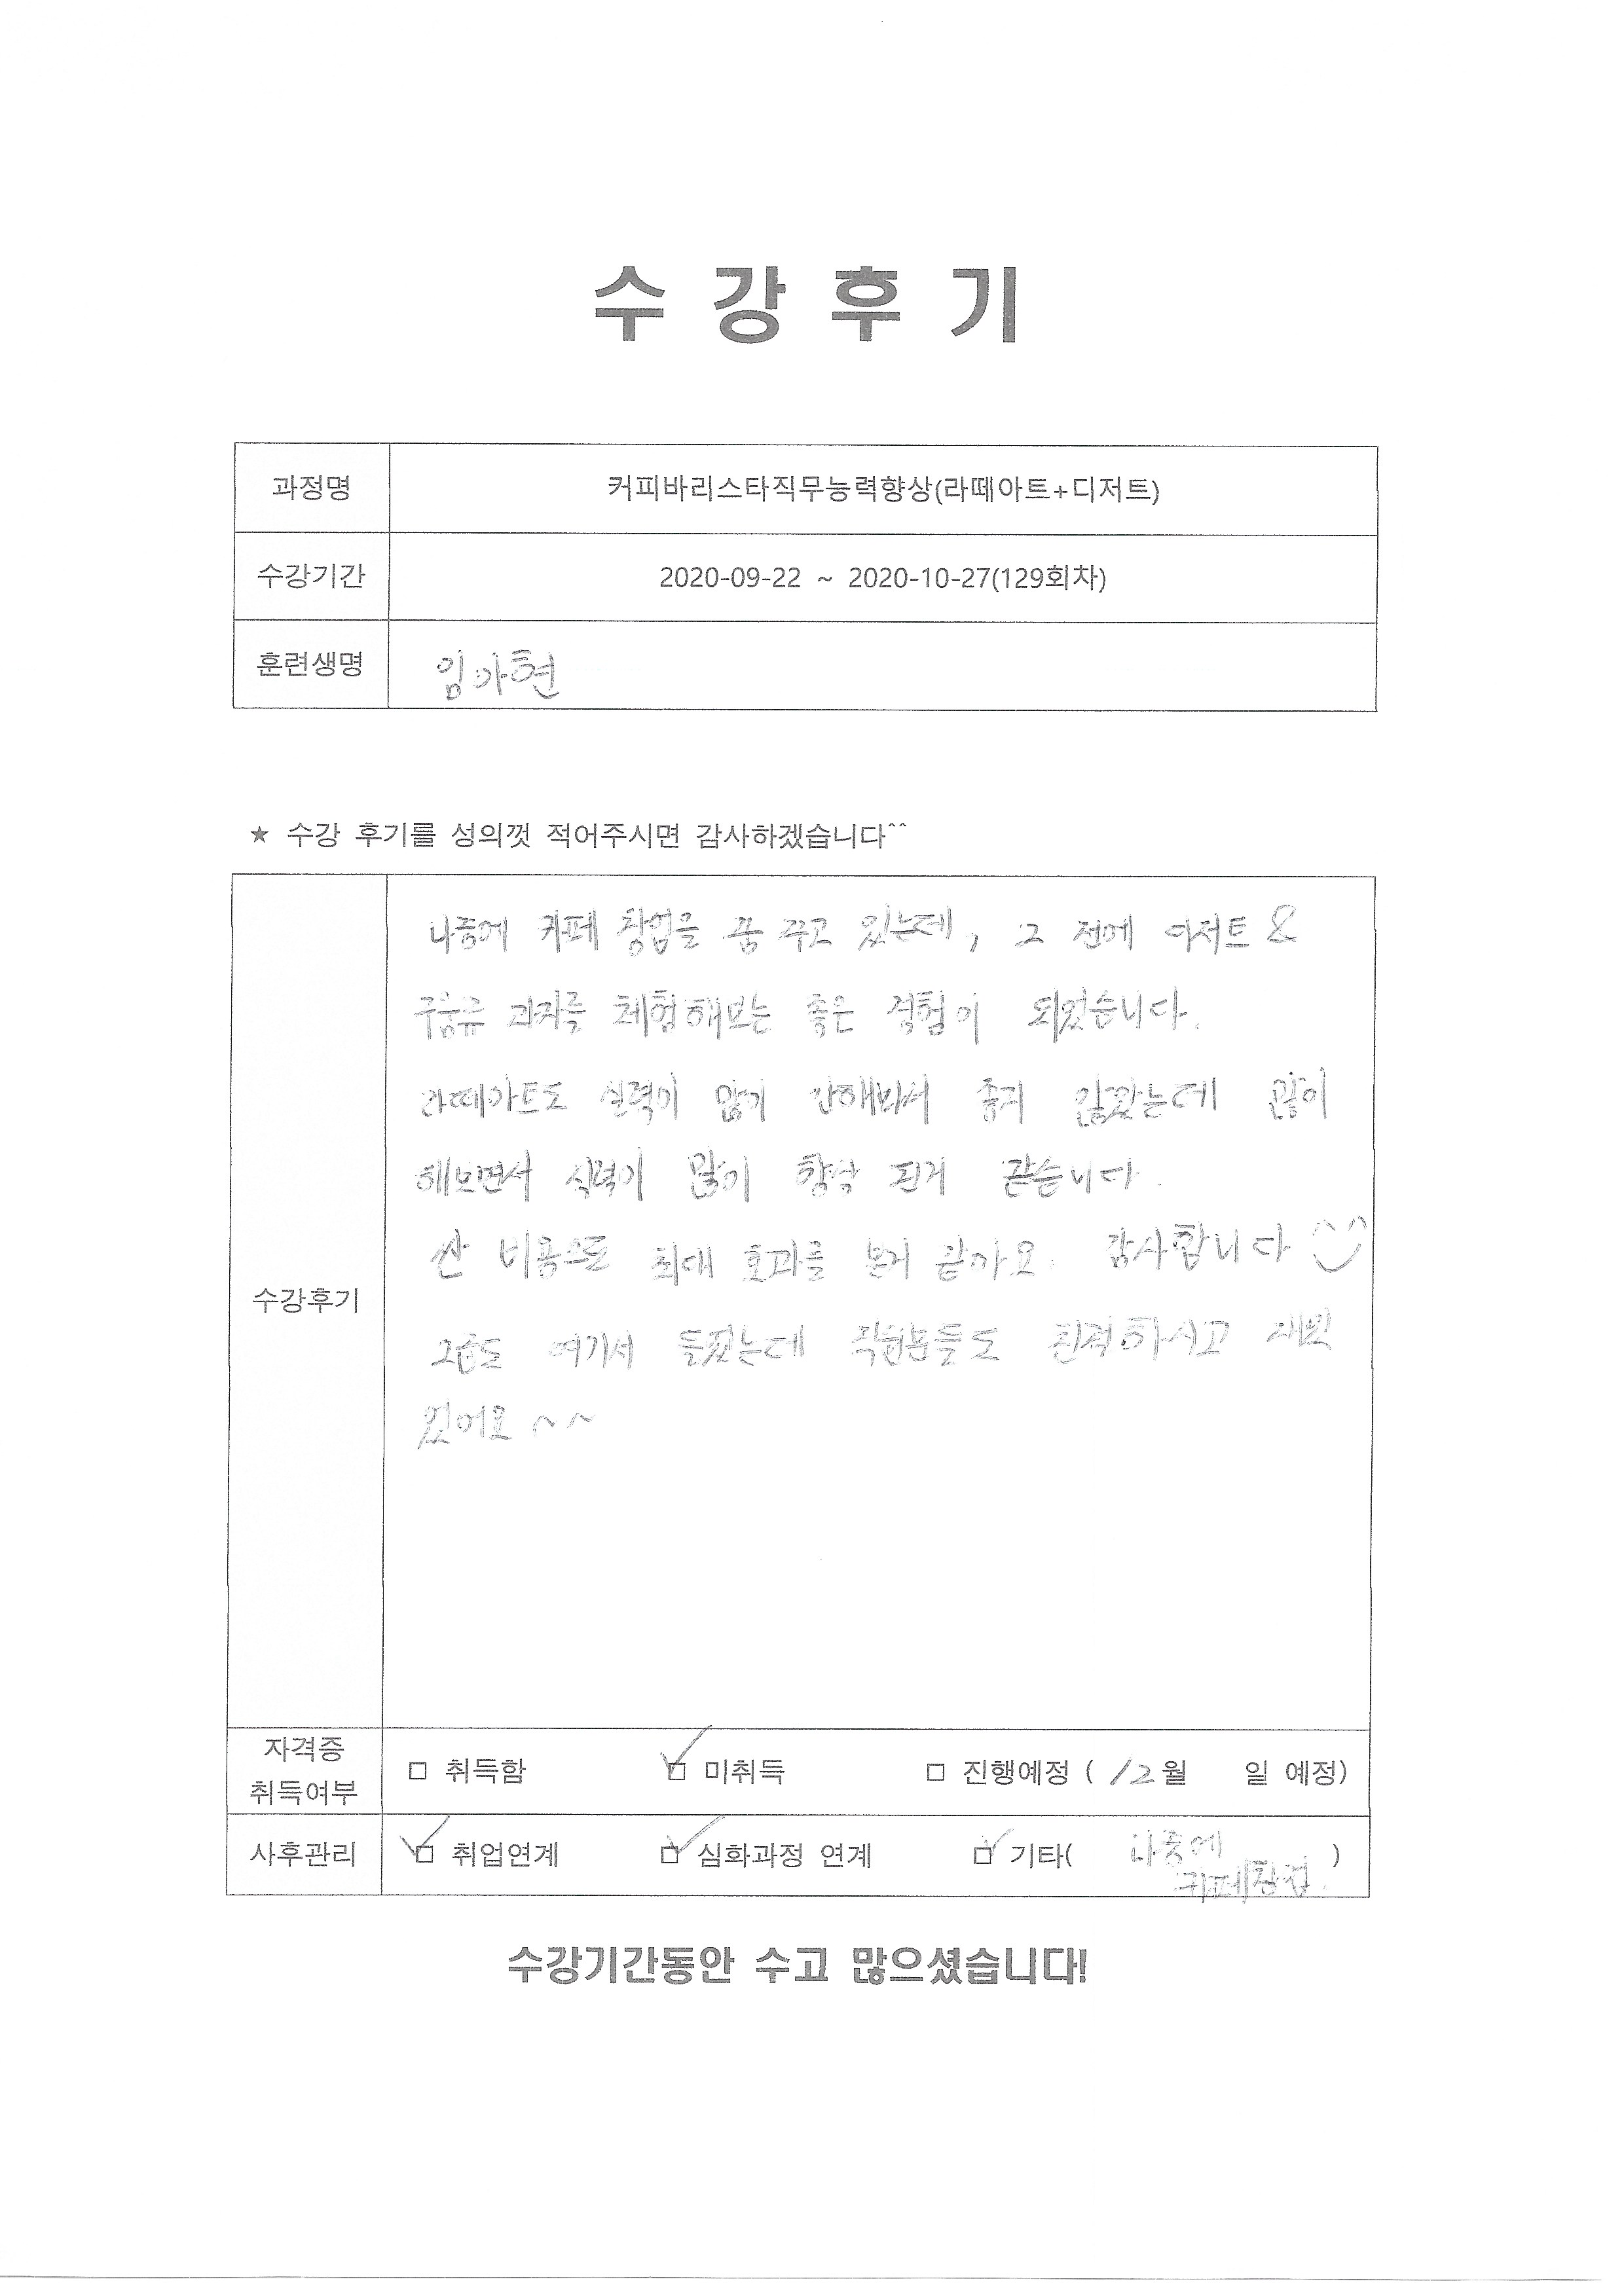 수강후기
과정명 커피바리스타직무능력향상(라떼아트+디저트)
수강기간 2020-09-22 ~ 2020-10-27(129회차)
훈련생명 임아현
★ 수강 후기를 성의껏 적어주시면 감사하겠습니다^^
수강후기
나중에 카페 창업을 꿈 꾸고 있는데, 그 전에 디저트 &
구움류 과자를 체험해보는 좋은 경험이 되었습니다.
라떼아트도 실력이 많이 안해봐서 좋지 않았는데 많이
해보면서 실력이 많이 향상 된거 같습니다.
싼 비용으로 최대 효과를 본거 같아요. 감사합니다
여기서 들었는데 직원분들도 친절하시고 재밌
있어요~~
자격증
취득여부 □ 취득함 □ 미취득 □ 진행예정 ( 12월 일 예정)
사후관리 □ 취업연계 □ 심화과정 연계 □ 기타( 나중에
카페창업 )
수강기간동안 수고 많으셨습니다!